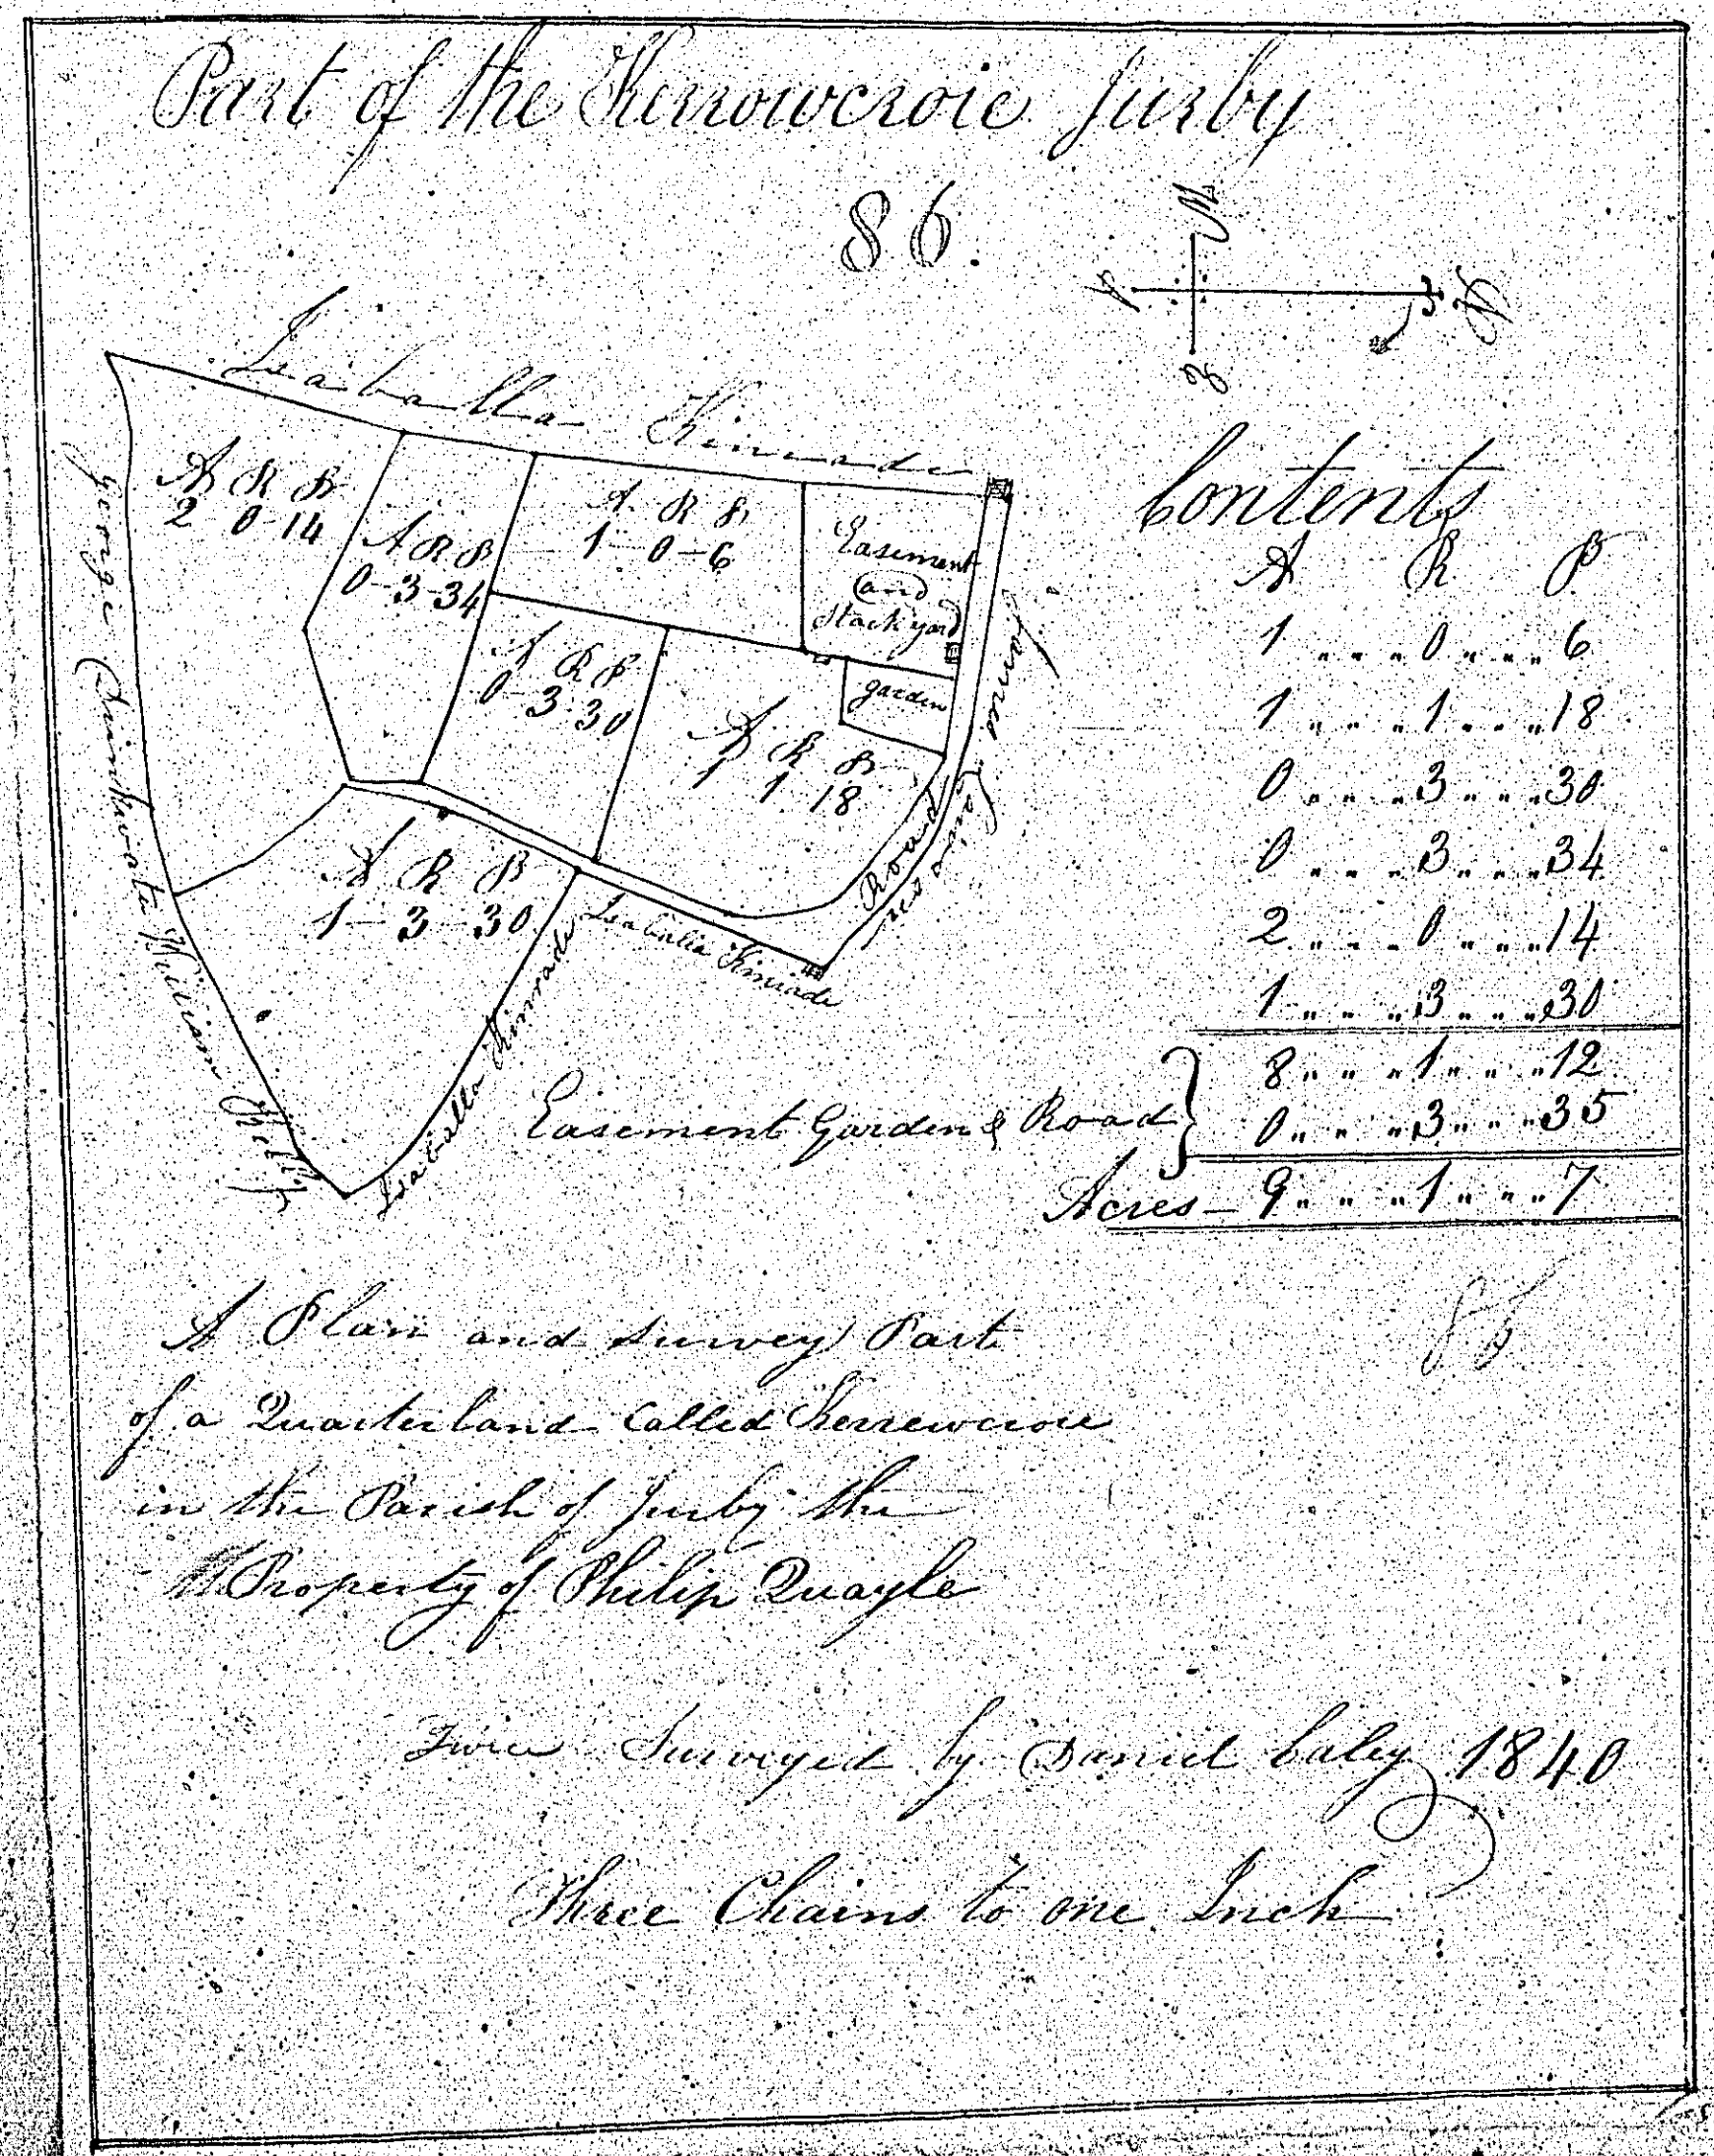 Part of the Kerrowcroie Jurby
86.
Isaballa Kinrade
A R P
2 0-14
A R P
0-3-34
A. R P
1-0-6
Easement
and
Stackyard
garden
A R P
0-3-30
A R P
1 1 18
A R P
1-3-30
Road
James
George William Kelly
Isabella Kinrade
Isabella Kinrade
Contents
A R P
1 " " " 0 " " " 6
1 " " " 1 " " " 18
0 " " " 3 " " " 30
0 " " " 3 " " " 34
2 " " " 0 " " " 14
1 " " " 3 " " " 30
8 " " " 1 " " " 12
Easement Garden & Road } 0 " " " 3 " " " 35
Acres - 9 " " " 1 " " " 7
A Plan and Survey Part
of a Quarterland Called Kerrewcroie
in the Parish of Jurby the
Property of Philip Quayle
Twice Surveyed by Daniel Caley 1840
Three Chains to one Inch